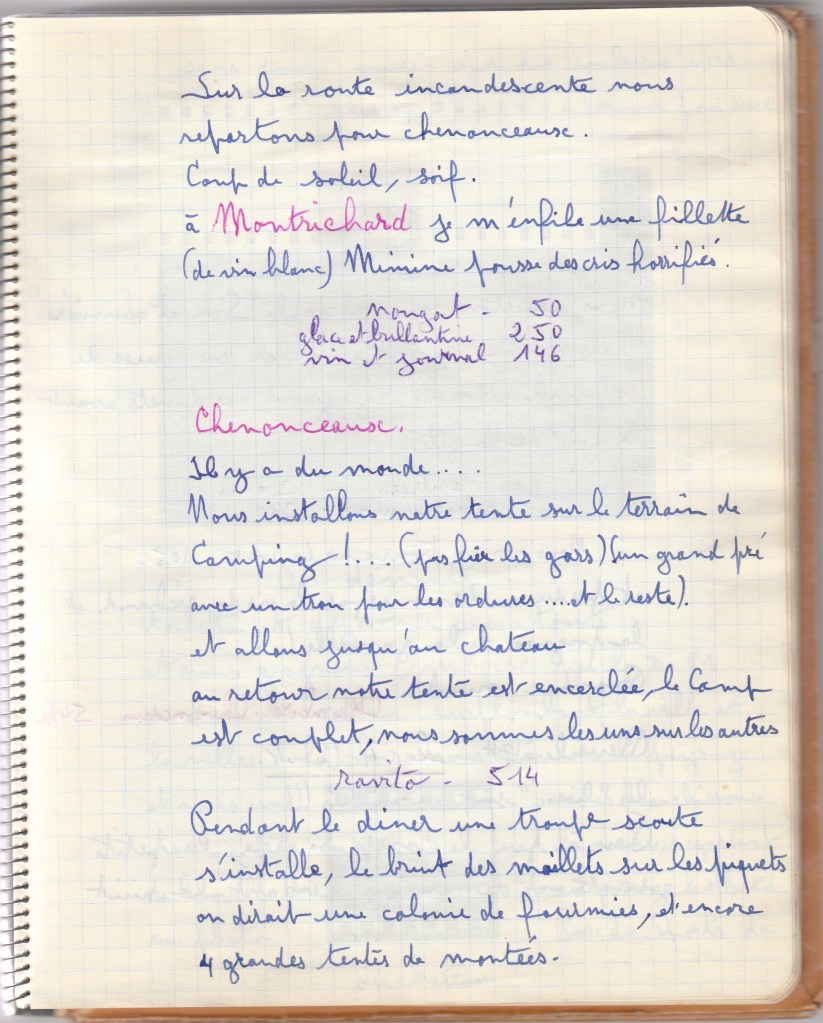 Sur la route incandescente nous
repartons pour chenonceaux.
Coup de soleil, soif.
à Montrichard je m'enfile une fillette
(de vin blanc) Minine pousse des cris horrifiés.
nougat - 50
glace et brillantine 250
vin et journal 146
Chenonceaux.
Il y a du monde....
Nous installons notre tente sur le terrain de
Camping !... (pas fier les gars) (un grand pré
avec un trou pour les ordures ....et le reste).
et allons jusqu'au chateau
au retour notre tente est encerclée, le Camp
est complet, nous sommes les uns sur les autres
ravito - 514
Pendant le diner une troupe scoute
s'installe, le bruit des maillets sur les piquets
on dirait une colonie de fourmies, et encore
4 grandes tentes de montées.